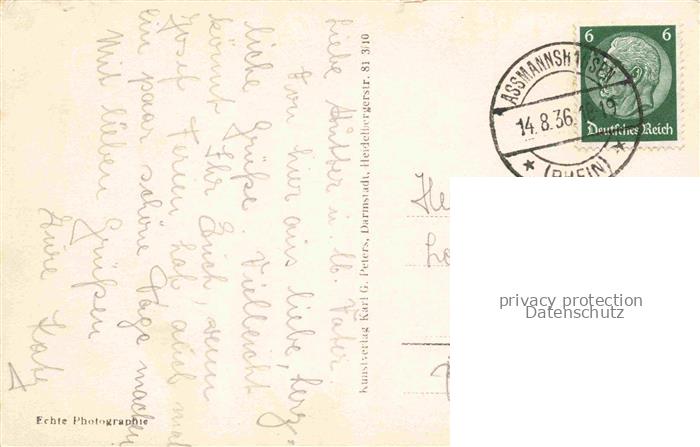 Liebe Mutter u. lb. Vater.
Von hier aus liebe, herz-
liche Grüße. Vielleicht
könnt Ihr Euch, wenn
Josef Ferien hat, auch mal
ein paar schöne Tage machen
Mit lieben Grüßen
Eure Kath
Echte Photographie
Kunstverlag Karl G. Peters, Darmstadt, Heidelbergerstr. 81 3/40
6 6
Deutsches Reich
ASSMANNSHAUSEN
14.8.36. 19
(RHEIN)
He
privacy protection
Datenschutz